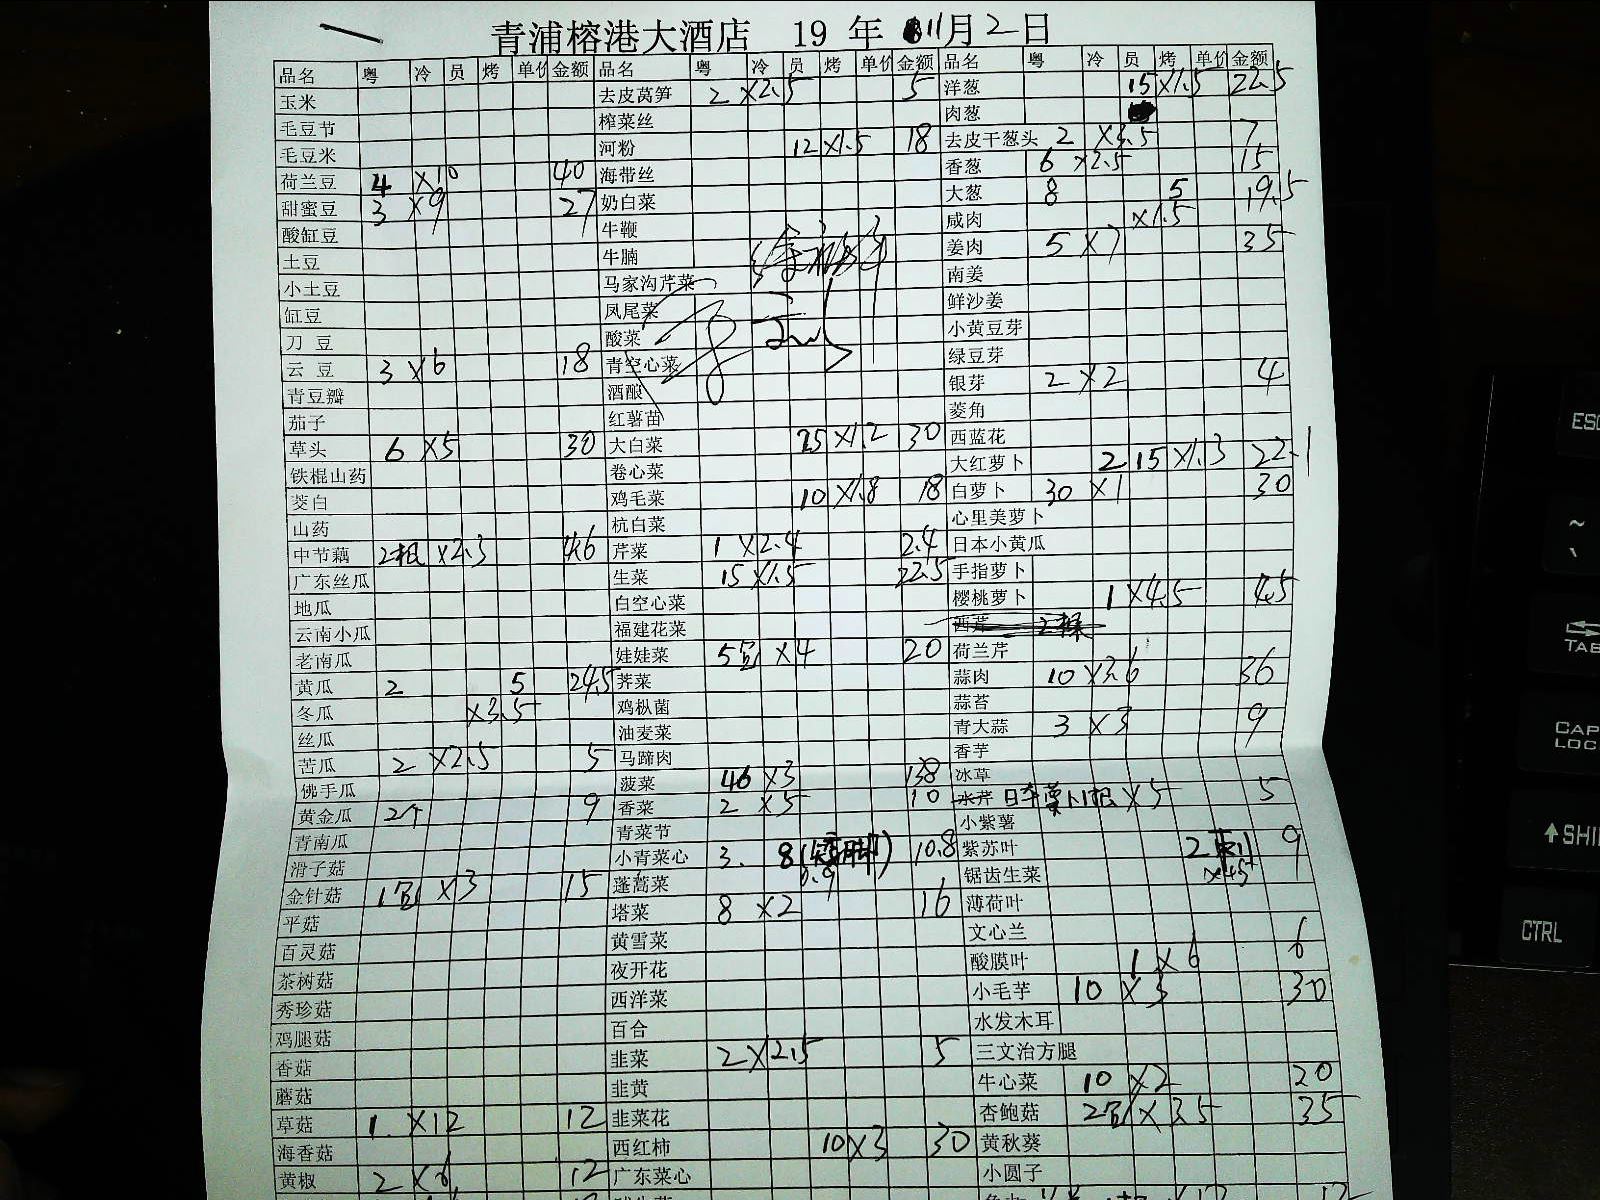 青浦榕港大酒店 19 年 11月2日
品名 粤 冷 员 烤 单价 金额 品名 粤 冷 员 烤 单价 金额 品名 粤 冷 员 烤 单价 金额
玉米 去皮莴笋 2 ×2.5 5 洋葱 15 ×1.5 22.5
毛豆节 榨菜丝 肉葱
毛豆米 河粉 12 ×1.5 18 去皮干葱头 2 ×3.5 7
荷兰豆 4 ×10 40 海带丝 香葱 6 ×2.5 15
甜蜜豆 3 ×9 27 奶白菜 大葱 8 5 19.5
酸缸豆 牛鞭 咸肉 ×1.5
土豆 牛腩 姜肉 5 ×7 35
小土豆 马家沟芹菜 南姜
缸豆 凤尾菜 鲜沙姜
刀 豆 酸菜 小黄豆芽
云 豆 3 ×6 18 青空心菜 绿豆芽
青豆瓣 酒酿 银芽 2 ×2 4
茄子 红薯苗 菱角
草头 6 ×5 30 大白菜 25 ×1.2 30 西蓝花
铁棍山药 卷心菜 大红萝卜 2 15 ×1.3 22.1
茭白 鸡毛菜 10 ×1.8 18 白萝卜 30 ×1 30
山药 杭白菜 心里美萝卜
中节藕 2根 ×2.3 4.6 芹菜 1 ×2.4 2.4 日本小黄瓜
广东丝瓜 生菜 15 ×1.5 22.5 手指萝卜
地瓜 白空心菜 樱桃萝卜 1 ×4.5 4.5
云南小瓜 福建花菜 西芹 2棵
老南瓜 娃娃菜 5包 ×4 20 荷兰芹
黄瓜 2 5 24.5 荠菜 蒜肉 10 ×3.6 36
冬瓜 ×3.5 鸡枞菌 蒜苔
丝瓜 油麦菜 青大蒜 3 ×3 9
苦瓜 2 ×2.5 5 马蹄肉 香芋
佛手瓜 菠菜 46 ×3 138 冰草
黄金瓜 2个 9 香菜 2 ×5 10 水芹 日本萝卜1根 ×5 5
青南瓜 青菜节 小紫薯
滑子菇 小青菜心 3. 8 0.9 10.8 紫苏叶 2 ×4.5 9
金针菇 1包 ×3 15 蓬蒿菜 锯齿生菜
平菇 塔菜 8 ×2 16 薄荷叶
百灵菇 黄雪菜 文心兰
茶树菇 夜开花 酸膜叶 1 ×6 6
秀珍菇 西洋菜 小毛芋 10 ×3 30
鸡腿菇 百合 水发木耳
香菇 韭菜 2 ×2.5 5 三文治方腿
蘑菇 韭黄 牛心菜 10 ×2 20
草菇 1. ×12 12 韭菜花 杏鲍菇 2包 ×3.5 35
海香菇 西红柿 10×3 30 黄秋葵
黄椒 2 ×6 12 广东菜心 小圆子